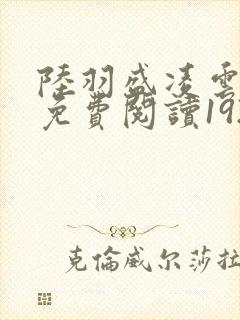 陸羽盛凌雲
免費閱讀19
克倫威尔莎拉